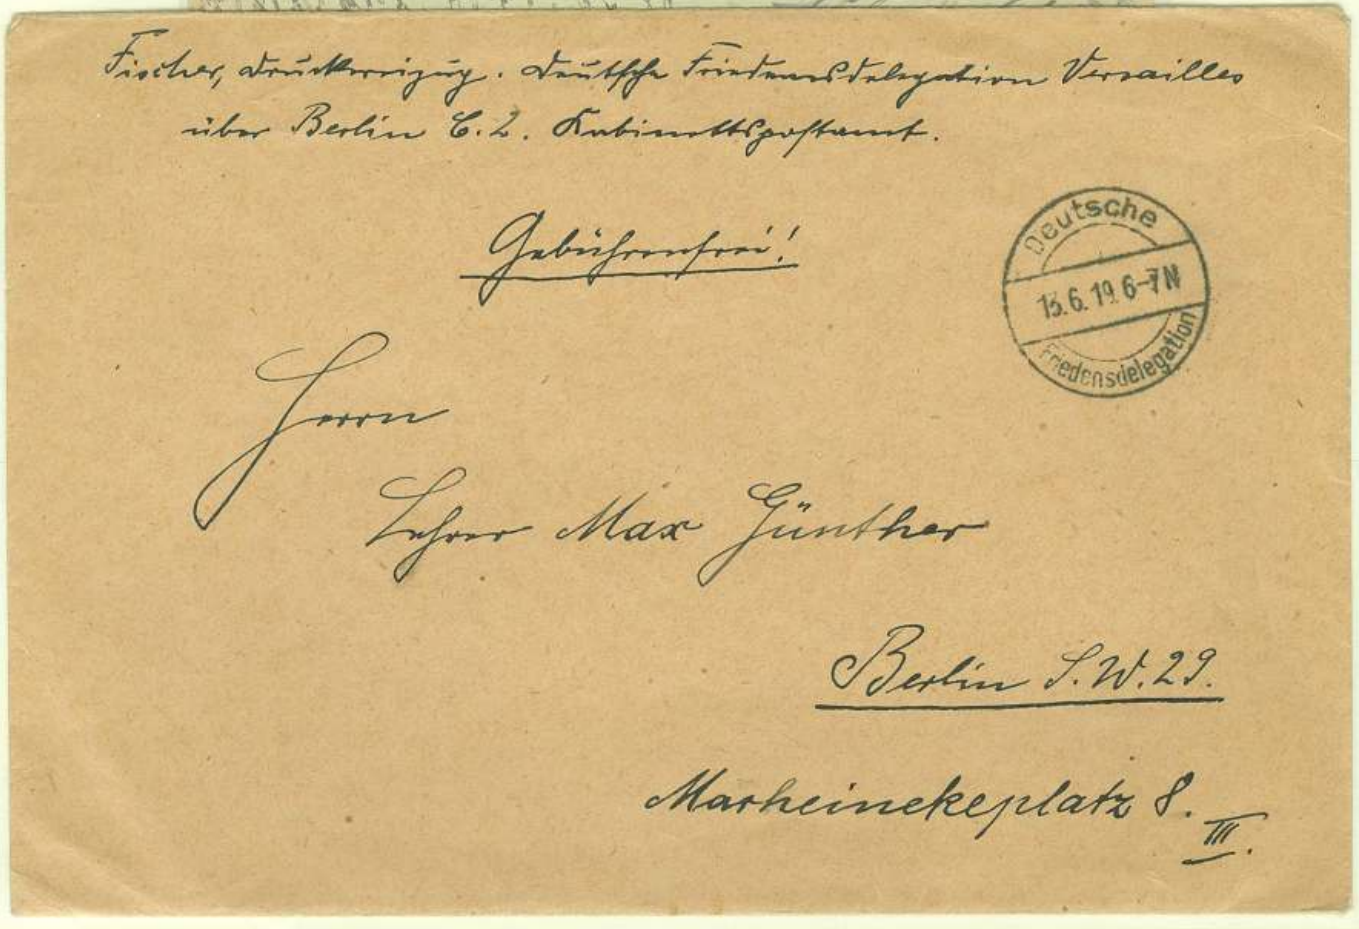 Fischer, Druckereizug. Deutsche Friedensdelegation Versailles
über Berlin C.2. Kabinettspostamt.
Gebührenfrei!
Deutsche
13.6.19. 6-7 N
Friedensdelegation
Herrn
Lehrer Max Günther
Berlin S.W.29.
Marheinekeplatz 8.
III.